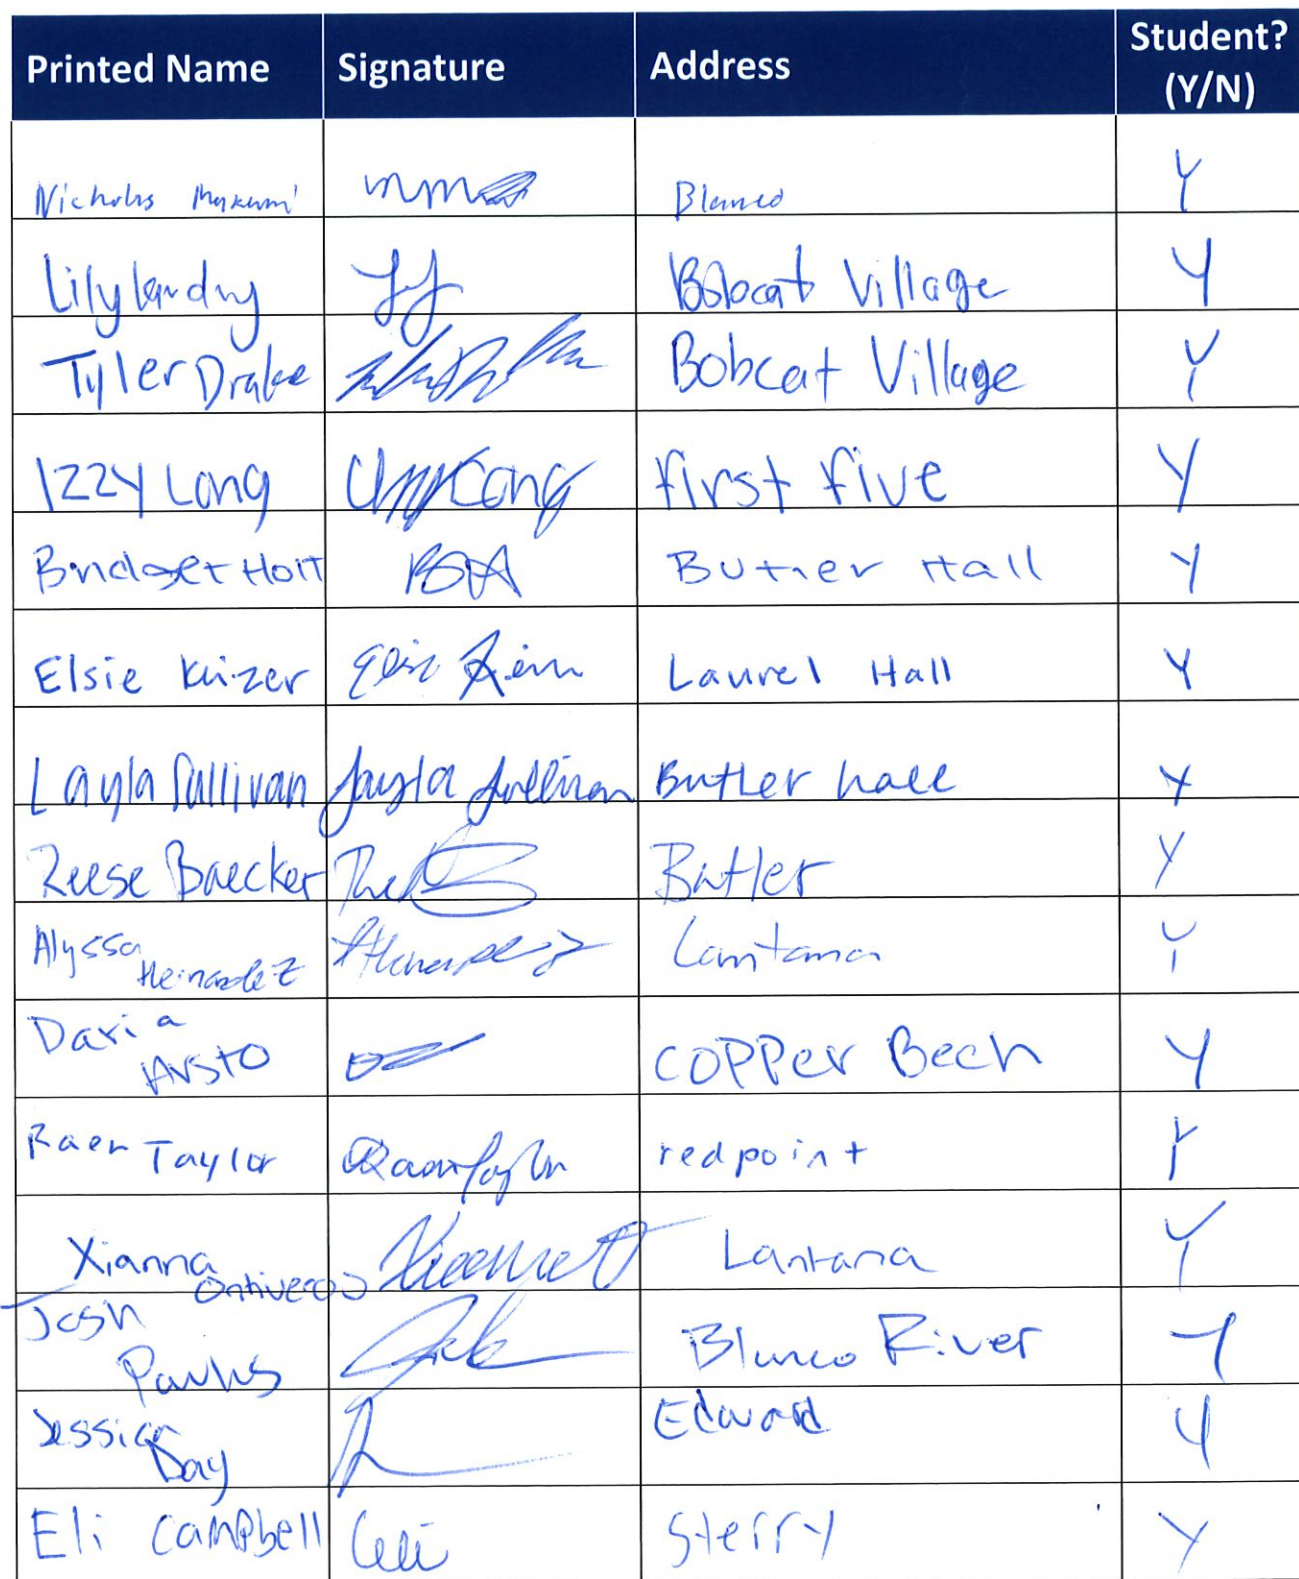 Printed Name Signature Address Student? (Y/N)
Nicholas Blanco Y
Lily Landry Bobcat Village Y
Tyler Drake Bobcat Village Y
Izzy Long first five Y
Bridget Hoit Butler Hall Y
Elsie Keizer Laurel Hall Y
Layla Sullivan Layla Sullivan Butler hall Y
Reese Baecker Butler Y
Alyssa Hernandez Lantana Y
Daria Copper Bech Y
Raen Taylor Raen Taylor redpoint Y
Xianna Ontiveros Lantana Y
Josh Blanco River Y
Jessica Day Edward Y
Eli Campbell Sterry Y